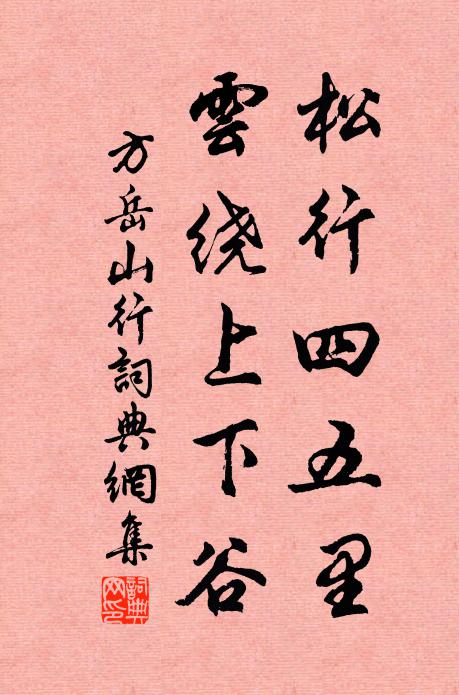 松行四五里
雲绕上下谷
方岳山行詞典網集
詞典网印